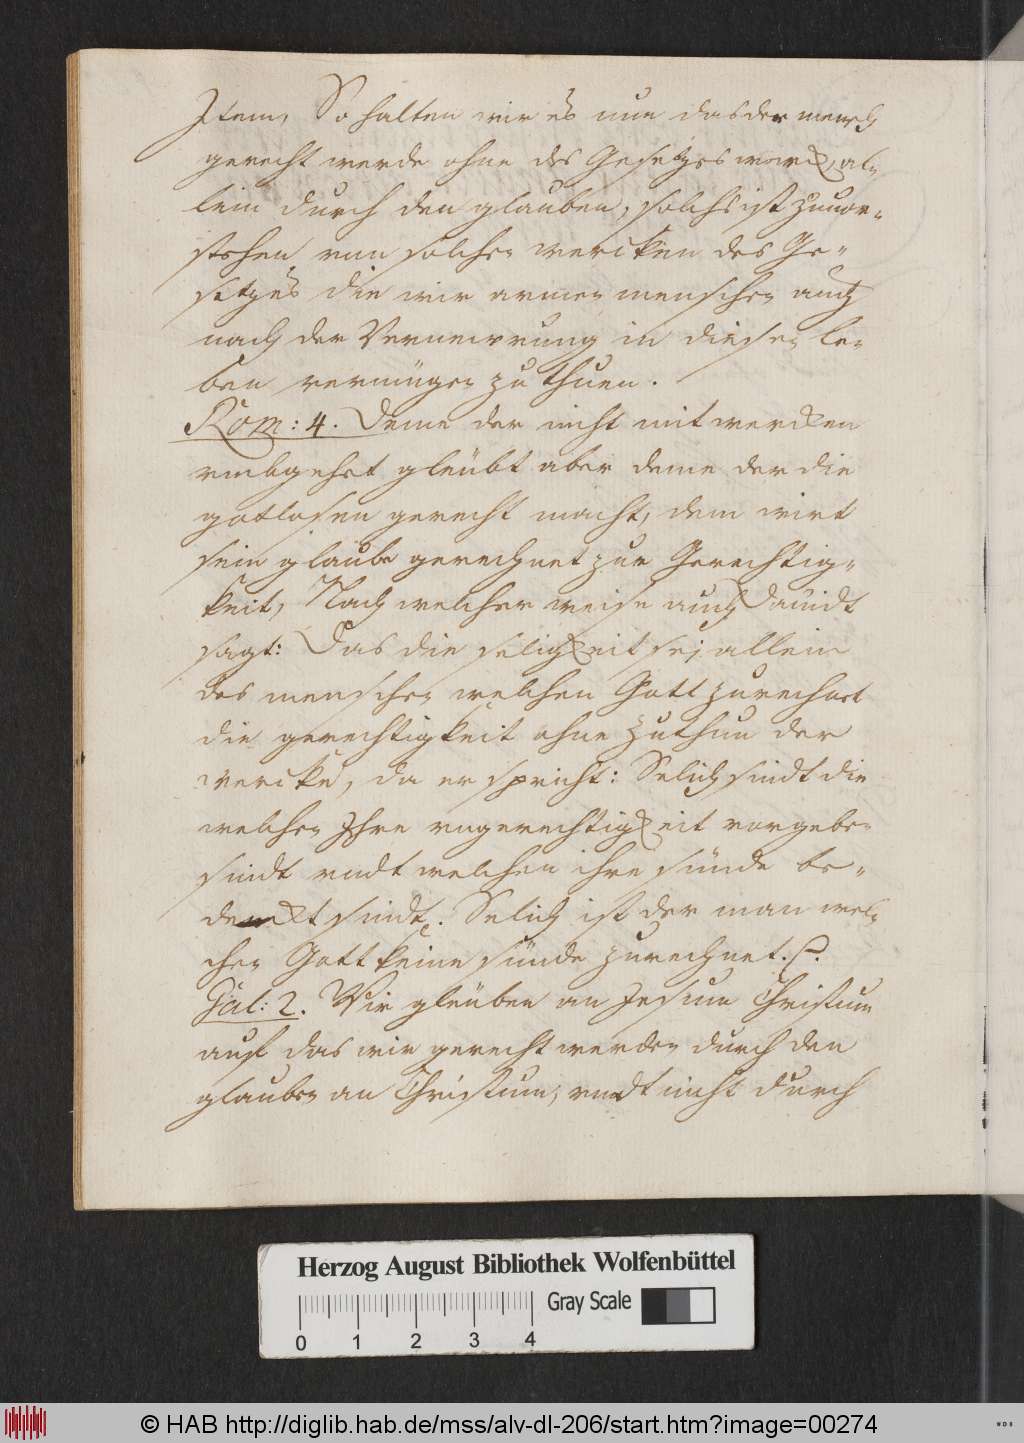 Item, So halten wir es nun das der mensch
gerecht werde ohne des Gesetzes werck, al-
lein durch den glauben, solchs ist zuuor-
stehen von solchen wercken des Ge-
setzes die wir armen menschen auch
nach der Vernewrung in diesen le-
ben vermügen zu thuen.
Rom: 4. Deme der nicht mit wercken
vmbgehet gleubt aber deme der die
gotlosen gerecht macht, dem wirt
sein glaube gerechnet zur Gerechtig-
keit, Nach welcher weise auch Dauidt
sagt: Das die seligkeit sej allein
des menschen welchen Gott zurechnet
die gerechtigkeit ohne zuthun der
wercke, da er spricht: Selich sindt die
welchen Ihre vngerechtigkeit vorgeben
sindt vndt welchen ihre sünde be-
deckt sindt. Selich ist der man wel-
chen Gott keine sünde zurechnet.
Gal: 2. Wir gleuben an Jesum Christum
auf das wir gerecht werden durch den
glauben an Christum, vndt nicht durch
Herzog August Bibliothek Wolfenbüttel
Gray Scale
0 1 2 3 4
© HAB http://diglib.hab.de/mss/alv-dl-206/start.htm?image=00274